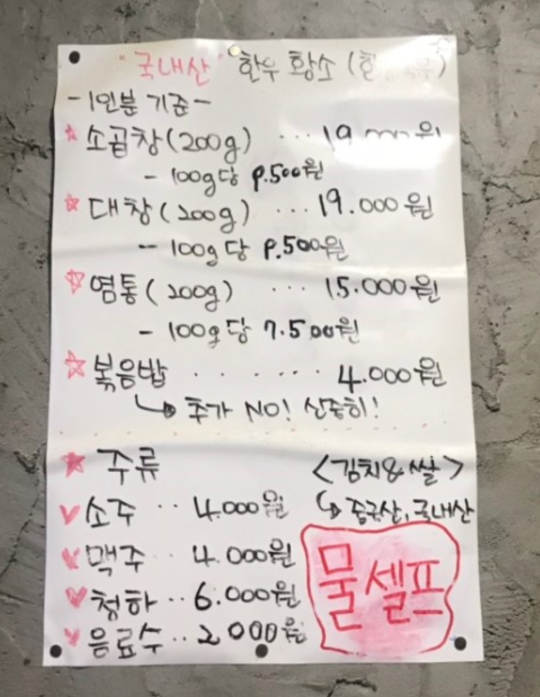 "국내산" 한우 황소
-1인분 기준-
☆ 소곱창(200g) ... 19.000원
- 100g당 9.500원
☆ 대창(200g) ... 19.000원
- 100g당 9.500원
☆ 염통(200g) ... 15.000원
- 100g당 7.500원
☆ 볶음밥 ...... 4.000원
↳ 추가 NO! 신중히!
★ 주류
♥ 소주 .. 4.000원
♥ 맥주 .. 4.000원
♥ 청하 .. 6.000원
♥ 음료수 .. 2000원
<김치&쌀>
↳ 중국산, 국내산
물 셀프